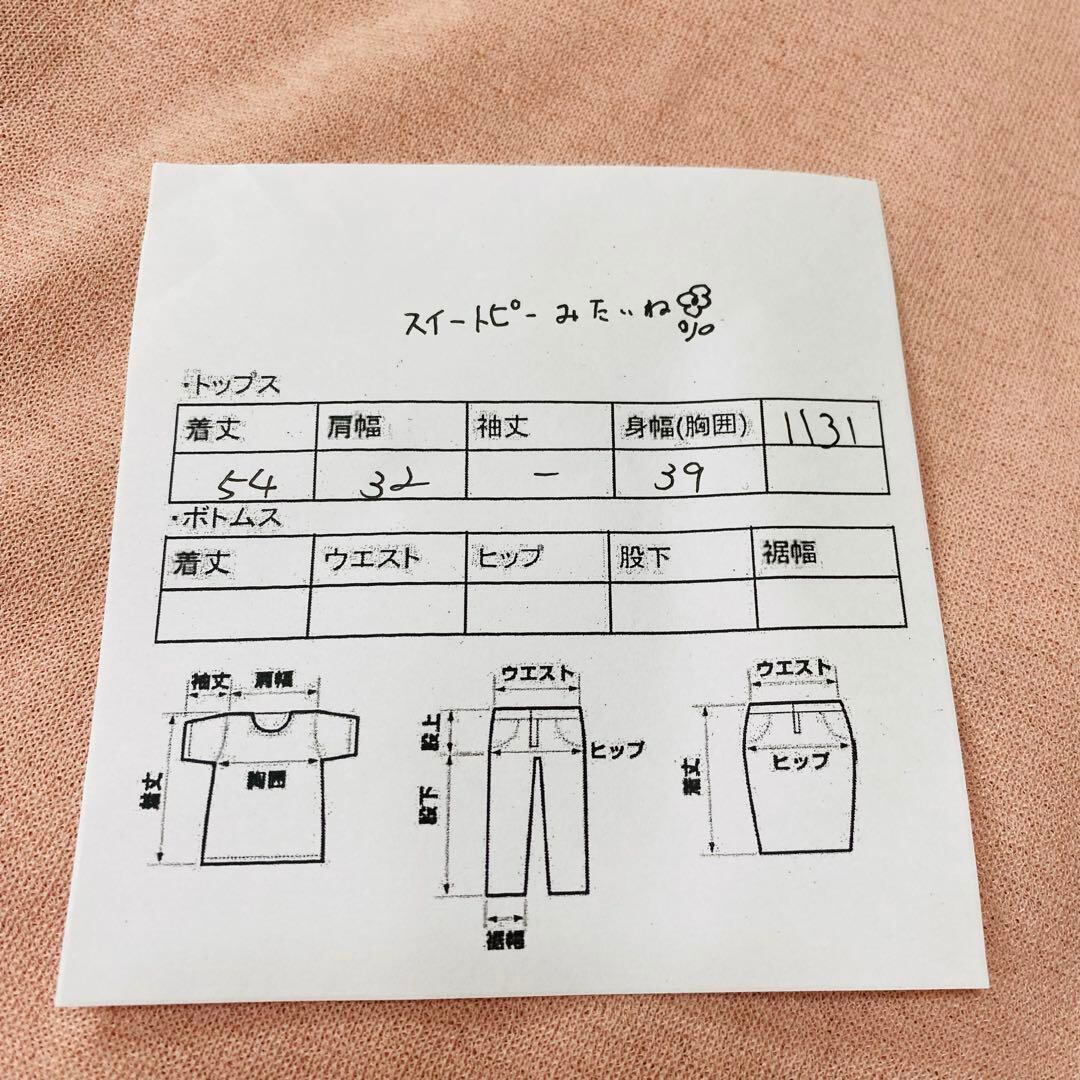 スイートピーみたいね
・トップス
着丈 肩幅 袖丈 身幅(胸囲) 1131
54 32 ー 39
・ボトムス
着丈 ウエスト ヒップ 股下 裾幅
袖丈 肩幅
着丈
胸囲
ウエスト
股上
ヒップ
股下
裾幅
ウエスト
ヒップ
着丈